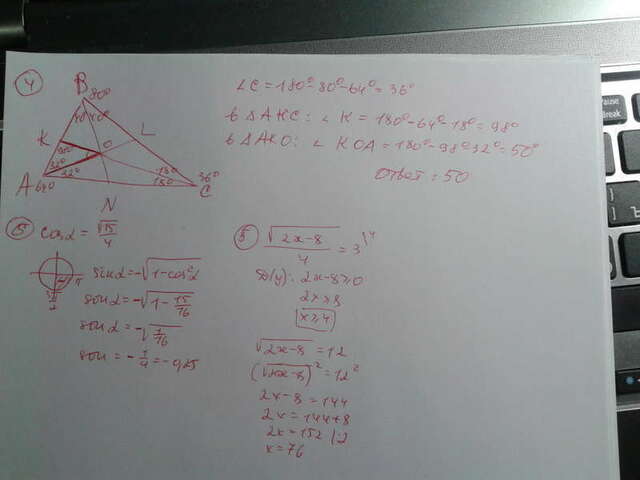 4
B
80°
40°
40°
K
98°
O
L
32°
32°
A
64°
18°
18°
36°
C
N
∠C = 180° - 80° - 64° = 36°
в ΔAKC: ∠K = 180° - 64° - 18° = 98°
в ΔAKO: ∠KOA = 180° - 98° 32° = 50°
Ответ: 50
15
cosα = √15/4
sinα = -√1-cos²α
sinα = -√1 - 15/16
sinα = -√1/16
sin = -1/4 = -0,25
5
√2x-8/4 = 3 |4
D(y): 2x-8≥0
2x≥8
x≥4
√2x-8 = 12
(√2x-8)² = 12²
2x-8 = 144
2x = 144+8
2x = 152 |:2
x = 76
Pause
Break
Ъ